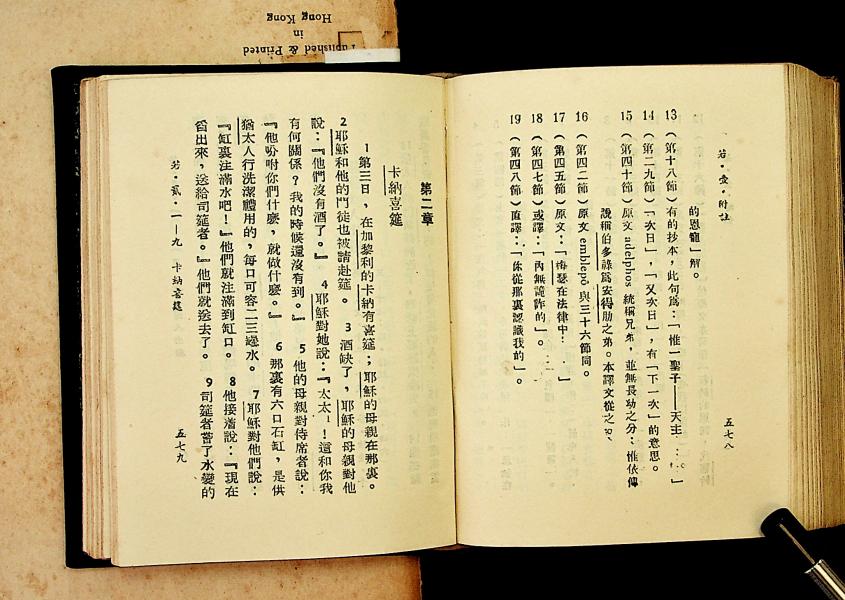 Published & Printed
in
Hong Kong
若·壹·附註
五七八
的恩寵」解。
13（第十八節）有的抄本，此句爲：「惟一聖子——天主……。」
14（第二九節）「次日」，「又次日」，有「下一次」的意思。
15（第四十節）原文 adelphos 統稱兄弟，並無長幼之分；惟依傳
說稱伯多祿爲安得肋之弟。本譯文從之。
16（第四二節）原文 emblepō 與三十六節同。
17（第四五節）原文：「梅瑟在法律中…」
18（第四七節）或譯：「內無詭詐的」。
19（第四八節）直譯：「你從那裏認識我的」。
第二章
卡納喜筵
1 第三日，在加黎利的卡納有喜筵；耶穌的母親在那裏。
2 耶穌和他的門徒也被請赴筵。 3 酒缺了，耶穌的母親對他
說：『他們沒有酒了。』 4 耶穌對她說：『太太！這和你我
有何關係？我的時候還沒有到。』 5 他的母親對侍席者說：
『他吩咐你們什麼，就做什麼。』 6 那裏有六口石缸，是供
猶太人行洗潔禮用的，每口可容二三 水。 7 耶穌對他們說：
『缸裏注滿水吧！』他們就注滿到缸口。 8 他接着說：『現在
舀出來，送給司筵者。』他們就送去了。 9 司筵者嘗了水變的
若·貳·一—九 卡納喜筵
五七九